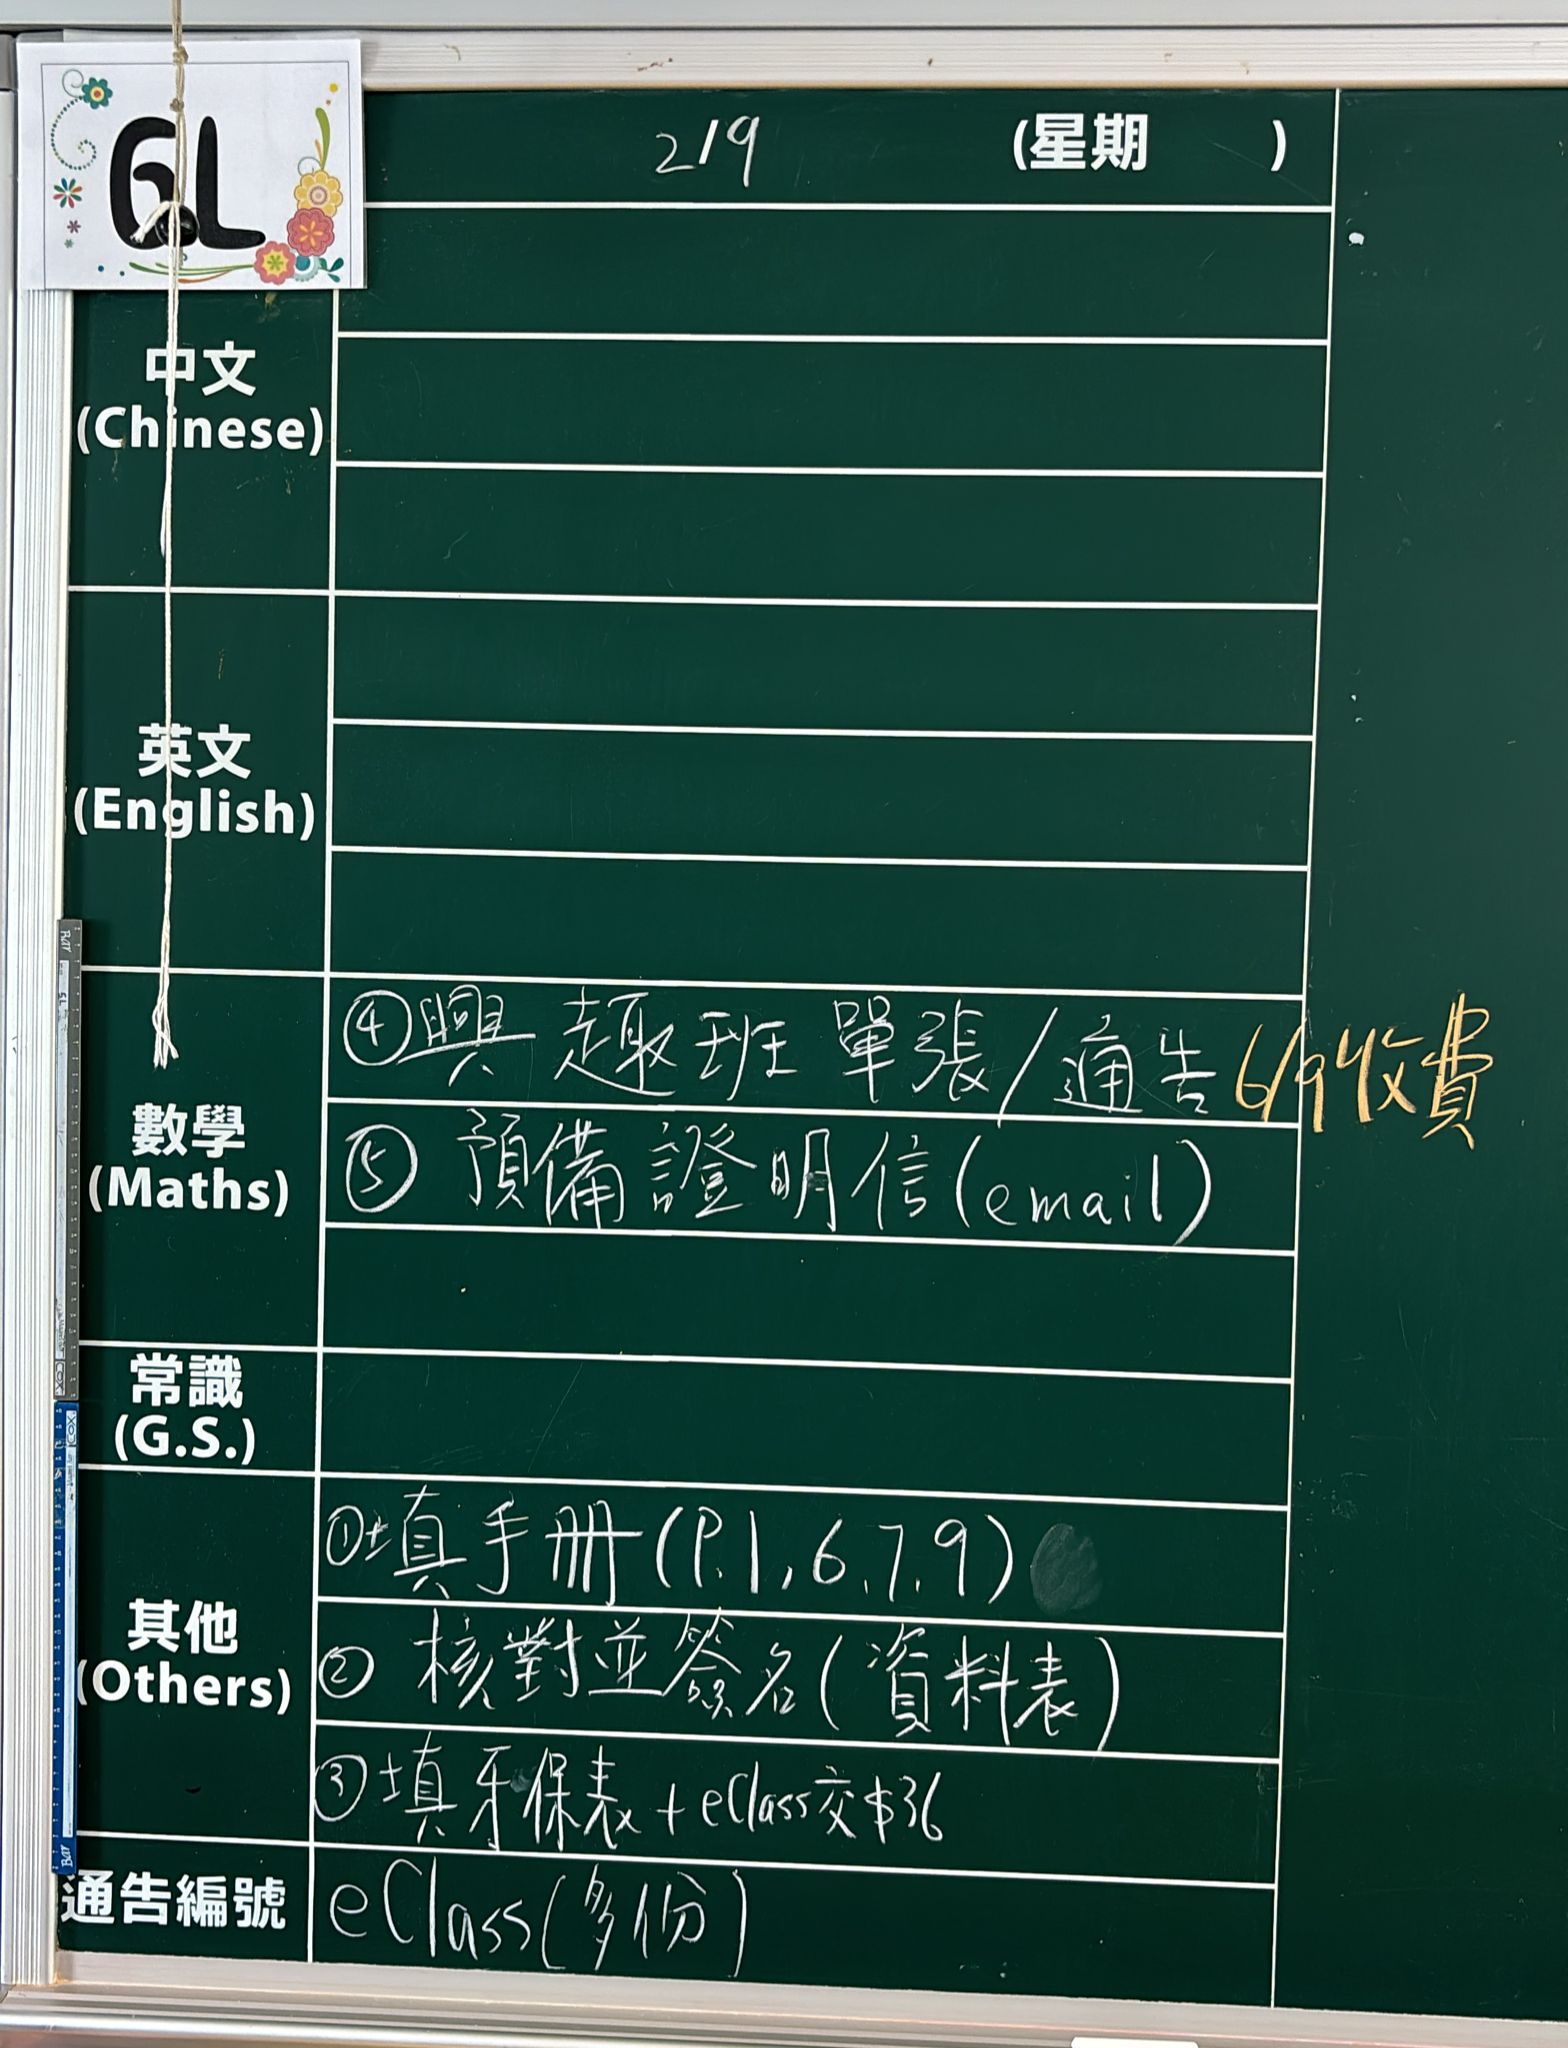 6L
2/9 (星期 )
中文
(Chinese)
英文
(English)
數學
(Maths)
④興趣班單張/通告 6/9收費
⑤ 預備證明信(email)
常識
(G.S.)
其他
(Others)
①填手冊(P.1,6,7,9)
② 核對並簽名(資料表)
③填牙保表+eClass交$36
通告編號
eClass(多份)